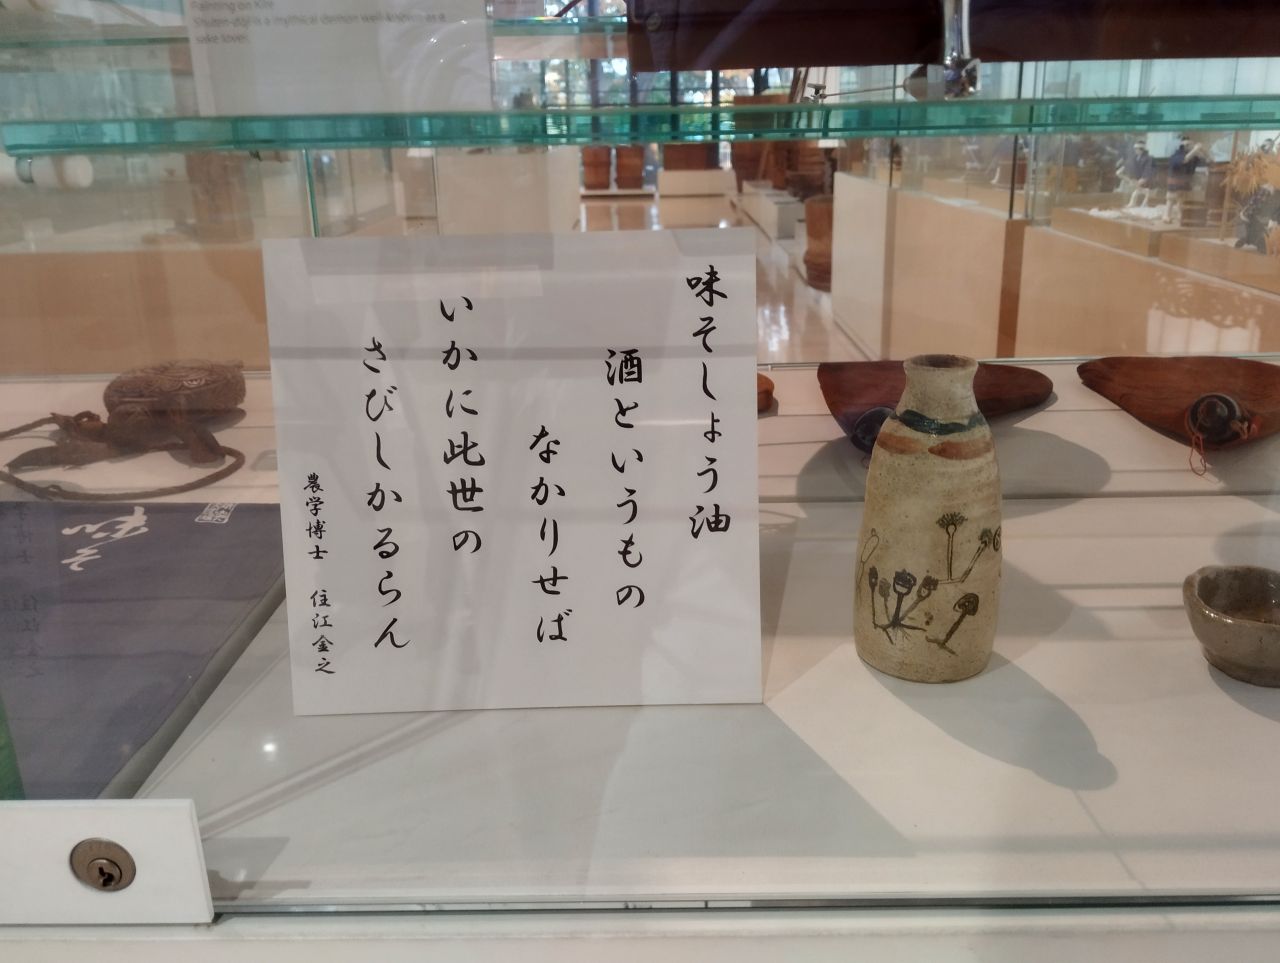 Painting on Kite
Shuten-doji is a mythical demon well-known as a
sake lover.
味そしょう油
酒というもの
なかりせば
いかに此世の
さびしかるらん
農学博士 住江金之